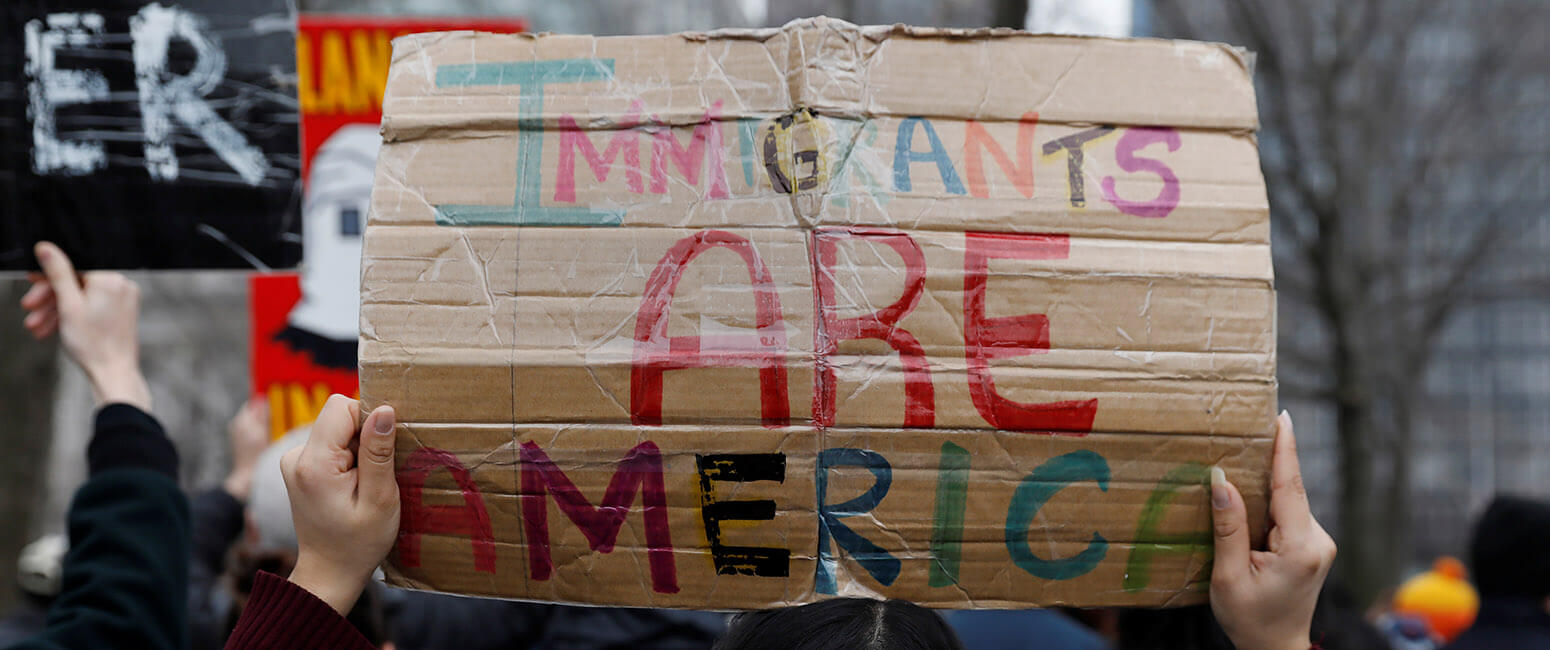 ER
IMMIGRANTS
ARE
AMERICA